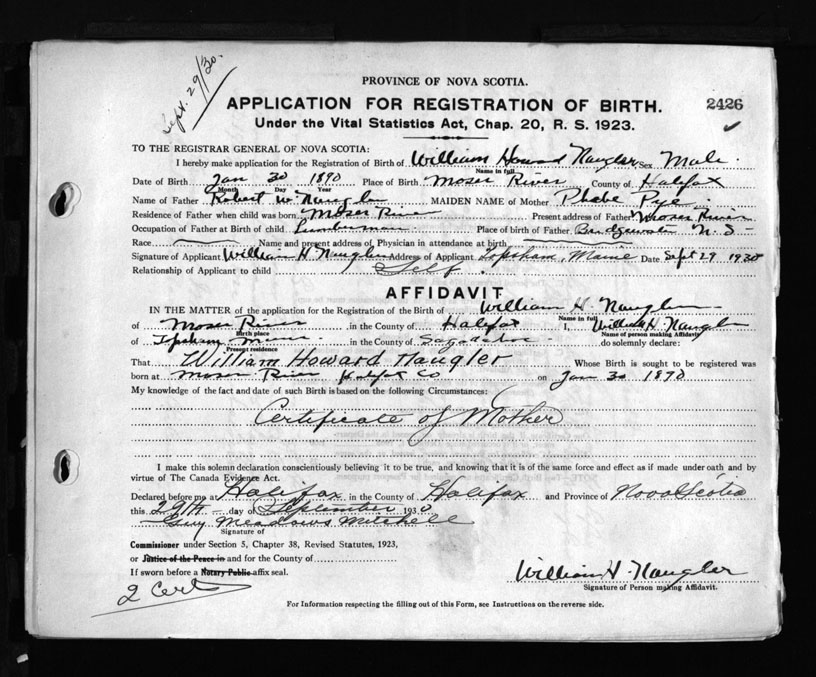 Sept. 29/30.
PROVINCE OF NOVA SCOTIA.
APPLICATION FOR REGISTRATION OF BIRTH. 2426
Under the Vital Statistics Act, Chap. 20, R. S. 1923.
TO THE REGISTRAR GENERAL OF NOVA SCOTIA:
I hereby make application for the Registration of Birth of William Howard Naugler Sex Male.
Name in full
Date of Birth Jan 30 1890 Place of Birth Moser River County of Halifax
Month Day Year
Name of Father Robert W. Naugler MAIDEN NAME of Mother Phebe Pye
Residence of Father when child was born Moser River Present address of Father Moser River
Occupation of Father at Birth of child. Lumberman. Place of birth of Father, N. S
Race Name and present address of Physician in attendance at birth
Signature of Applicant William H. Naugler Address of Applicant Topsham, Maine Date Sept 29 1930
Relationship of Applicant to child Self.
AFFIDAVIT
IN THE MATTER of the application for the Registration of the Birth of William H. Naugler
Name in full
of Moser River in the County of Halifax I, William H. Naugler
Birth place Name of person making Affidavit
of Topsham Maine in the County of Sagadahoc do solemnly declare:
Present residence
That William Howard Naugler Whose Birth is sought to be registered was
born at Moser River Halifax Co on Jan 30 1890
My knowledge of the fact and date of such Birth is based on the following Circumstances:
Certificate of Mother
I make this solemn declaration conscientiously believing it to be true, and knowing that it is of the same force and effect as if made under oath and by
virtue of The Canada Evidence Act.
Declared before me at Halifax in the County of Halifax and Province of Nova Scotia
this 29th day of September 1930
Guy Meadows Mitchell
Signature of
Commissioner under Section 5, Chapter 38, Revised Statutes, 1923,
or Justice of the Peace in and for the County of
If sworn before a Notary Public affix seal.
William H. Naugler
Signature of Person making Affidavit.
2 Cert
For Information respecting the filling out of this Form, see Instructions on the reverse side.